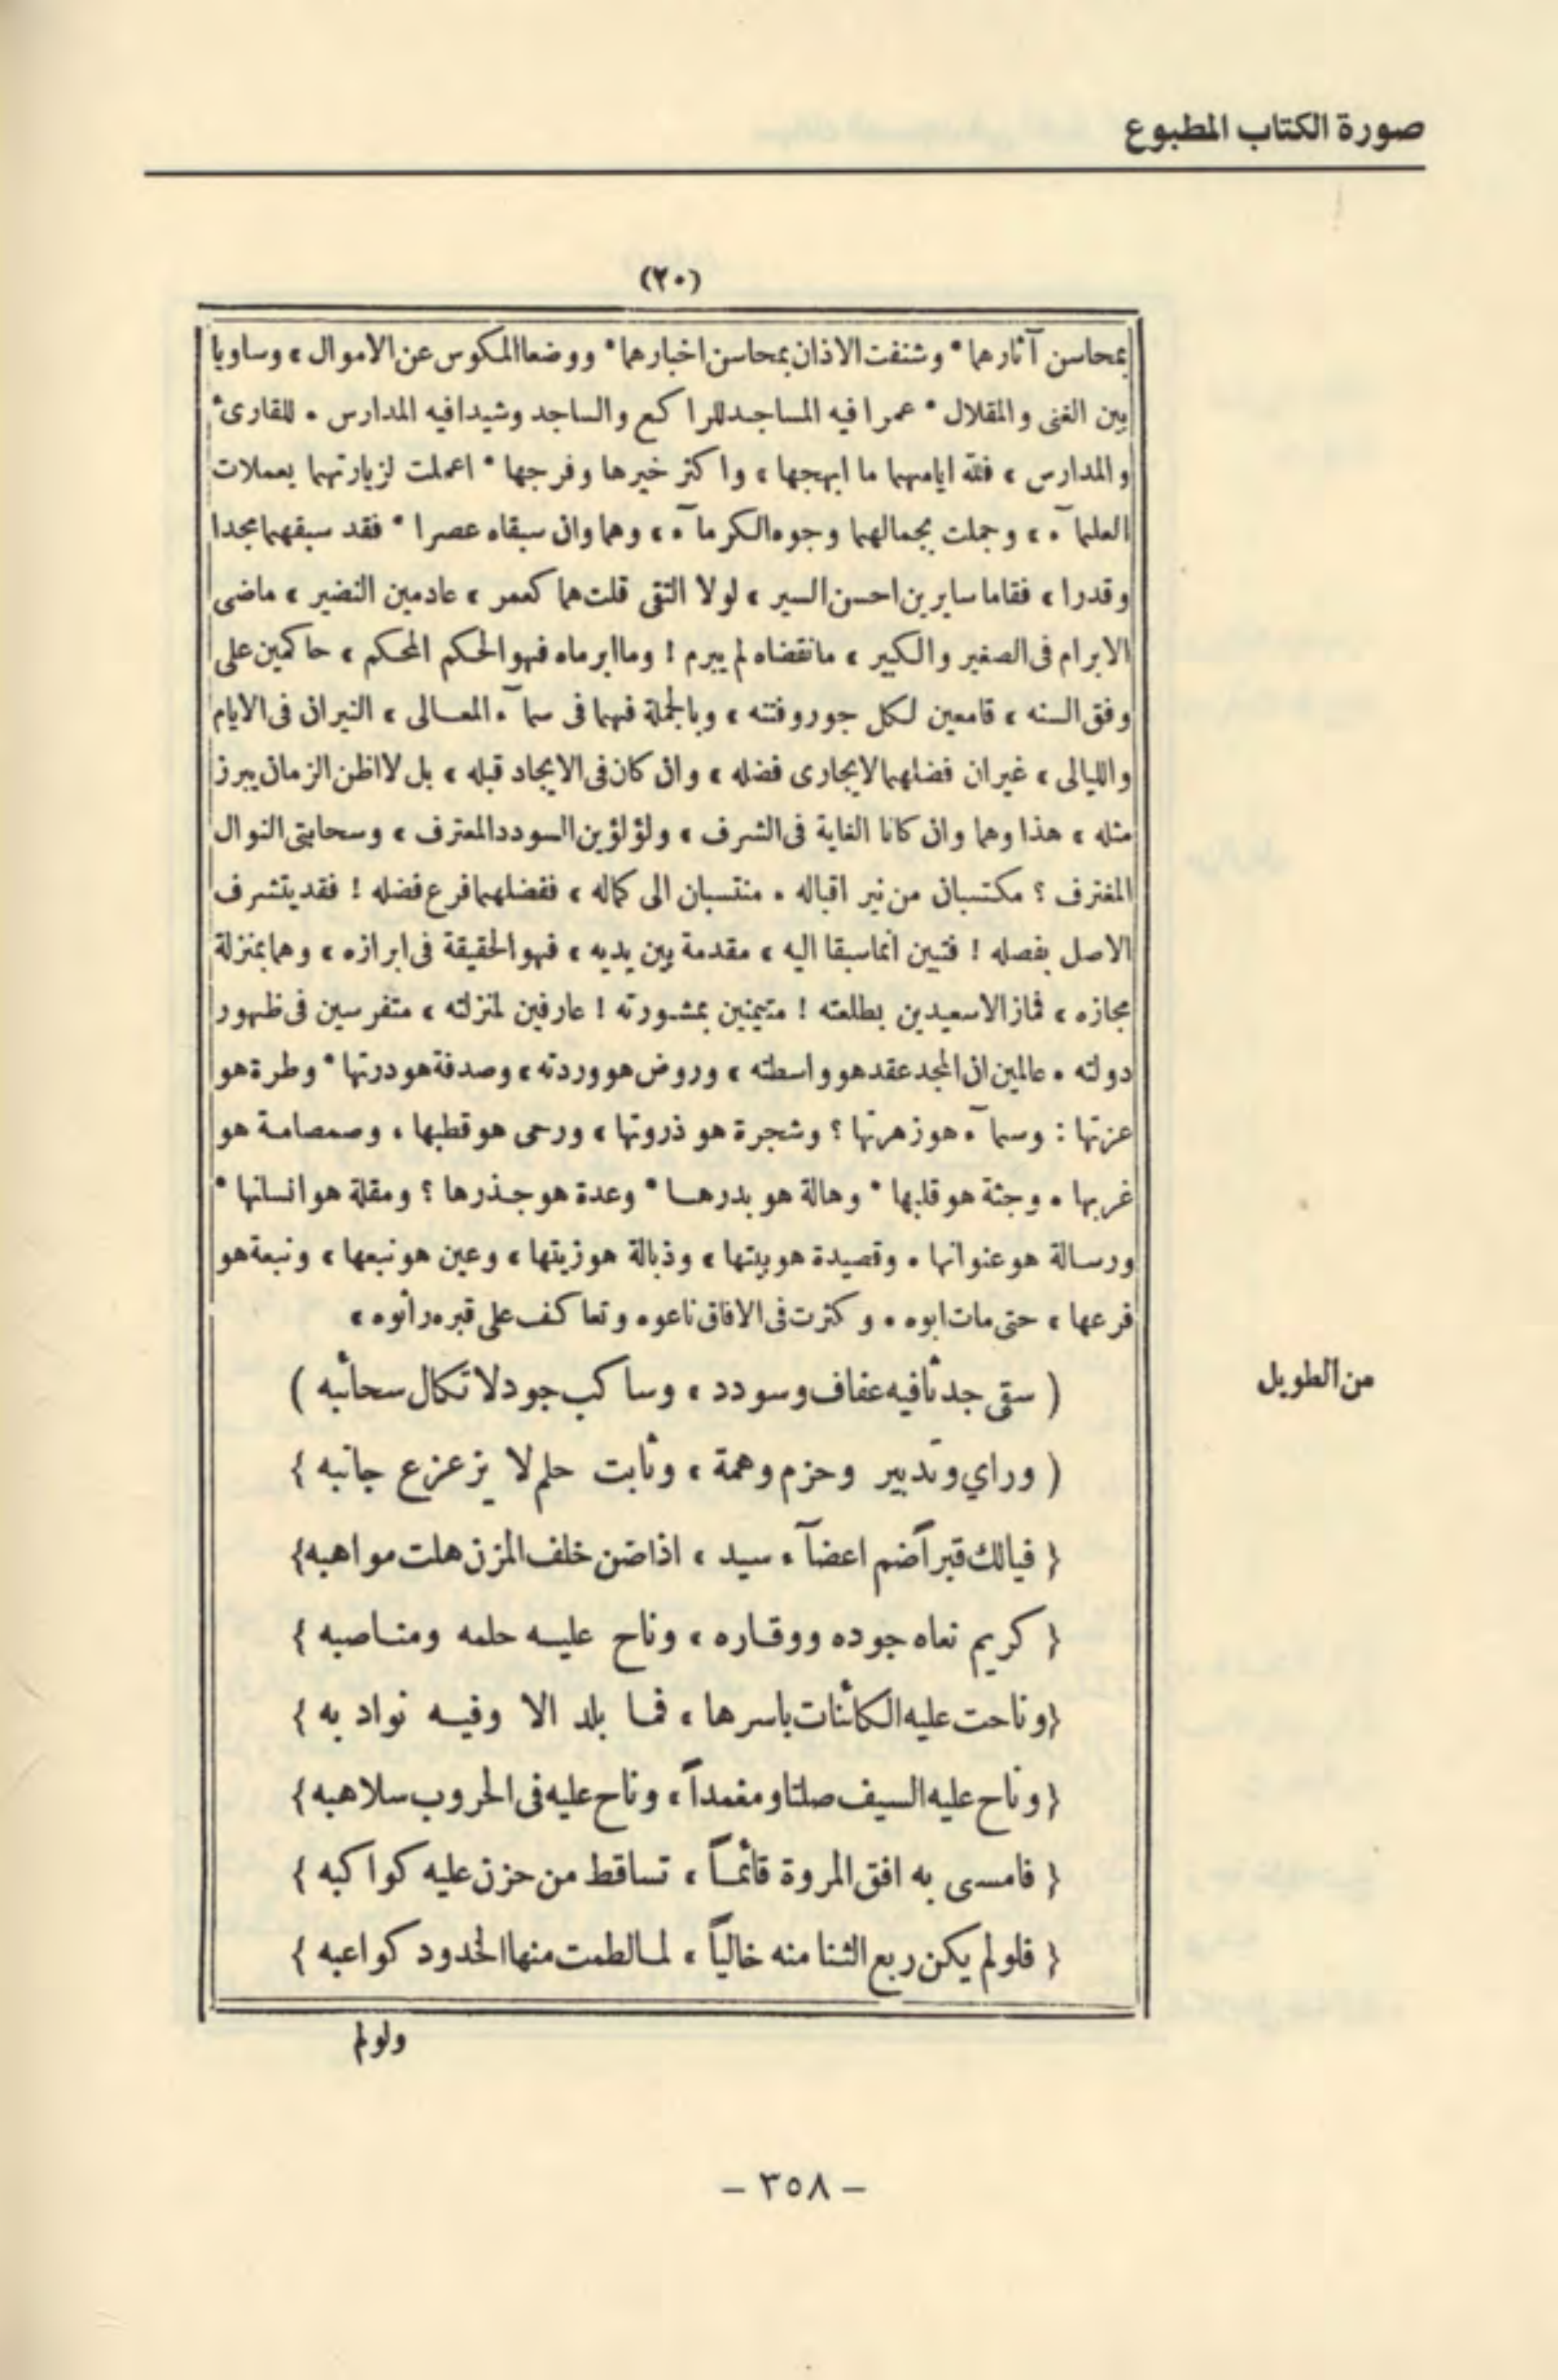 صورة الكتاب المطبوع
(٢٠)
بمحاسن آثارهما * وشنفت الاذان بمحاسن اخبارهما * ووضعا المكوس عن الاموال ، وساويا
بين الغنى والمقلال * عمرا فيه المساجد للراكع والساجد وشيدا فيه المدارس . للقارئ
والمدارس ، فلله ايامهما ما ابهجها ، واكثر خيرها وفرجها * اعملت لزيارتهما يعملات
العلمآء ، وجملت بجمالهما وجوه الكرمآء ، وهما وان سبقاه عصرا * فقد سبقهما مجدا
وقدرا ، فقاما سايرين احسن السير ، لولا التقى قلت هما كعمر ، عادمين النضير ، ماضى
الابرام فى الصغير والكبير ، مانقضاه لم يبرم ! وما ابرماه فهو الحكم المحكم ، حاكمين على
وفق السنه ، قامعين لكل جور وفتنه ، وبالجملة فهما فى سمآء المعالى ، النيران فى الايام
والليالى ، غير ان فضلهما لايجارى فضله ، وان كان فى الايجاد قبله ، بل لااظن الزمان يبرز
مثله ، هذا وهما وان كانا الغاية فى الشرف ، ولؤلؤين السودد المعترف ، وسحابتى النوال
المغترف ؟ مكتسبان من نير اقباله . منتسبان الى كماله ، ففضلهما فرع فضله ! فقد يتشرف
الاصل بفصله ! فتبين انما سبقا اليه ، مقدمة بين يديه ، فهو الحقيقة فى ابرازه ، وهما بمنزلة
مجازه ، فماز الاسعيدين بطلعته ! متيمنين بمشورته ! عارفين لمنزلته ، متفرسين فى ظهور
دولته . عالمين ان المجد عقد هو واسطته ، وروض هو وردته ، وصدفة هو درتها * وطرة هو
عزتها : وسمآء هو زهرتها ؟ وشجرة هو ذروتها ، ورحى هو قطبها ، وصمصامة هو
غربها . وجثة هو قلبها * وهالة هو بدرها * وعدة هو جذرها ؟ ومقلة هو انسانها *
ورسالة هو عنوانها . وقصيدة هو بيتها ، وذبالة هو زيتها ، وعين هو نبعها ، ونبعة هو
فرعها ، حتى مات ابوه . وكثرت فى الافاق ناعوه وتعاكف على قبره رائوه ،
من الطويل
( سقى جدثافيه عفاف وسودد ، وساكب جود لا تكال سحائبه )
( وراي وتدبير وحزم وهمة ، وثابت حلم لا يزعزع جانبه }
{ فيالك قبرآ ضم اعضآء سيد ، اذا ضن خلف المزن هلت مواهبه }
{ كريم نعاه جوده ووقاره ، وناح عليه حلمه ومناصبه }
{ وناحت عليه الكائنات باسرها ، فما بلد الا وفيه نواد به }
{ وناح عليه السيف صلتا ومغمداً ، وناح عليه فى الحروب سلاهبه }
{ فامسى به افق المروة قائماً ، تساقط من حزن عليه كواكبه }
{ فلولم يكن ربع الثنا منه خالياً ، لمالطمت منها الخدود كواعبه }
ولولم
- ٣٥٨ -